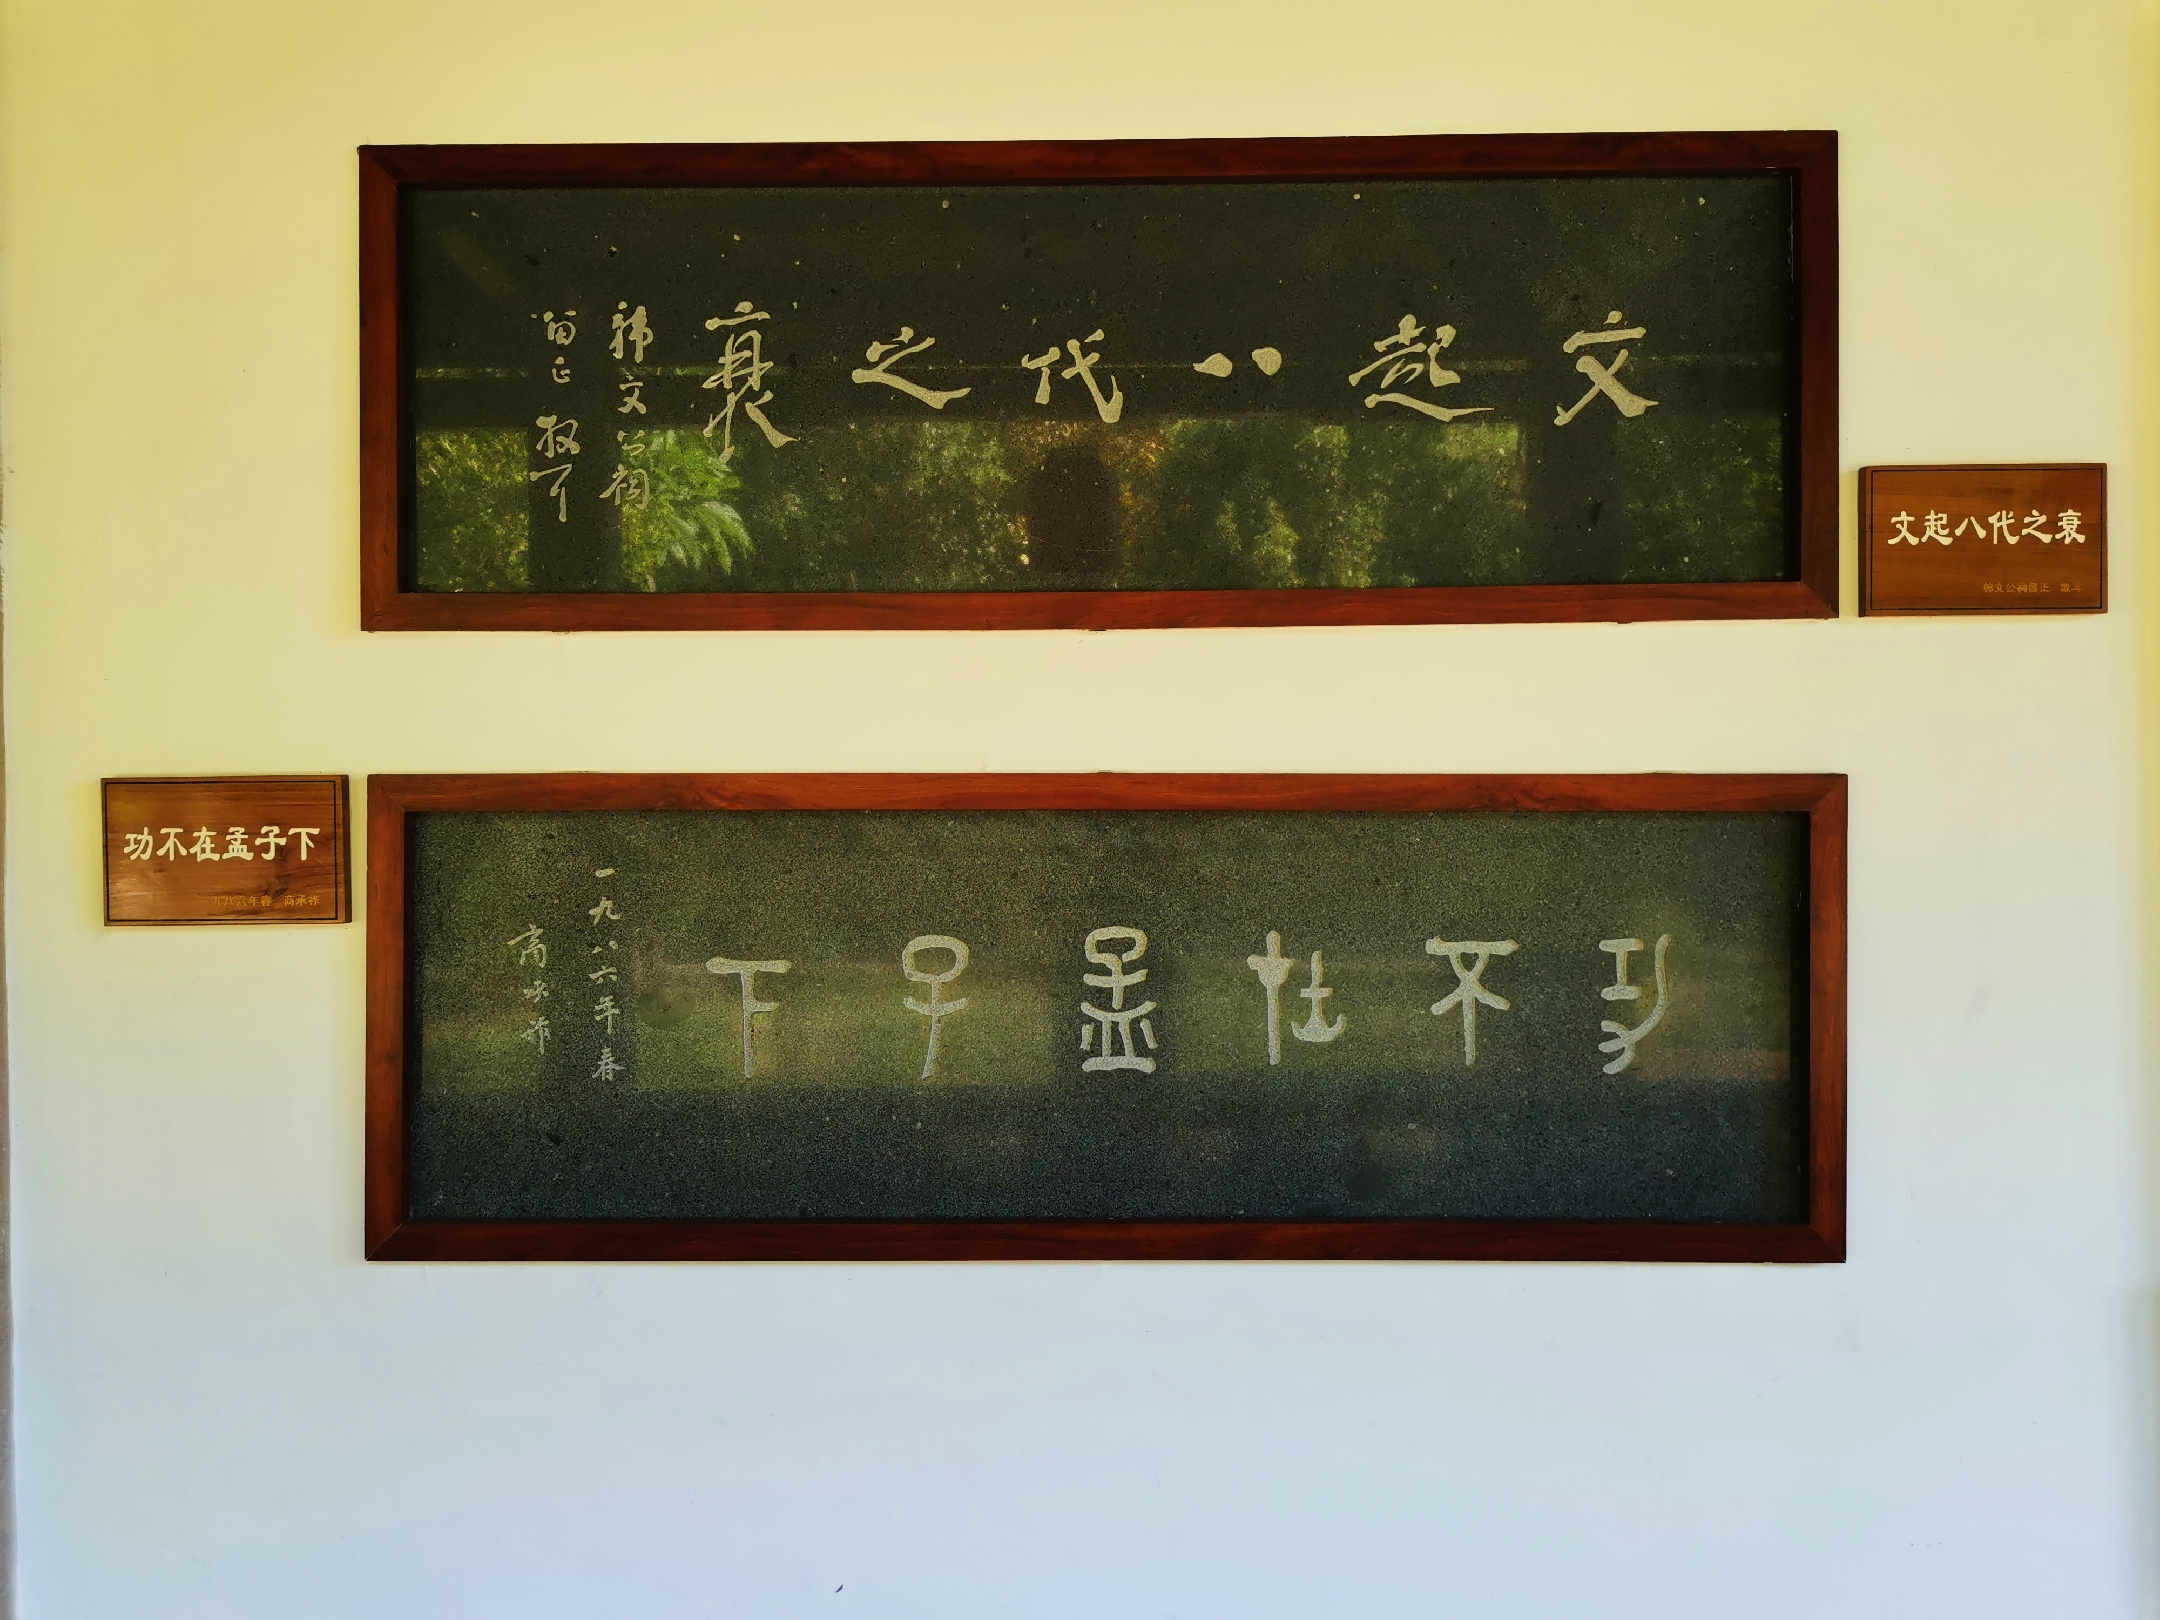 文起八代之衰
韩文公祠
留正
文起八代之衰
韩文公祠留正
功不在孟子下
一九八六年春 商承祚
功不在孟子下
一九八六年春
商承祚